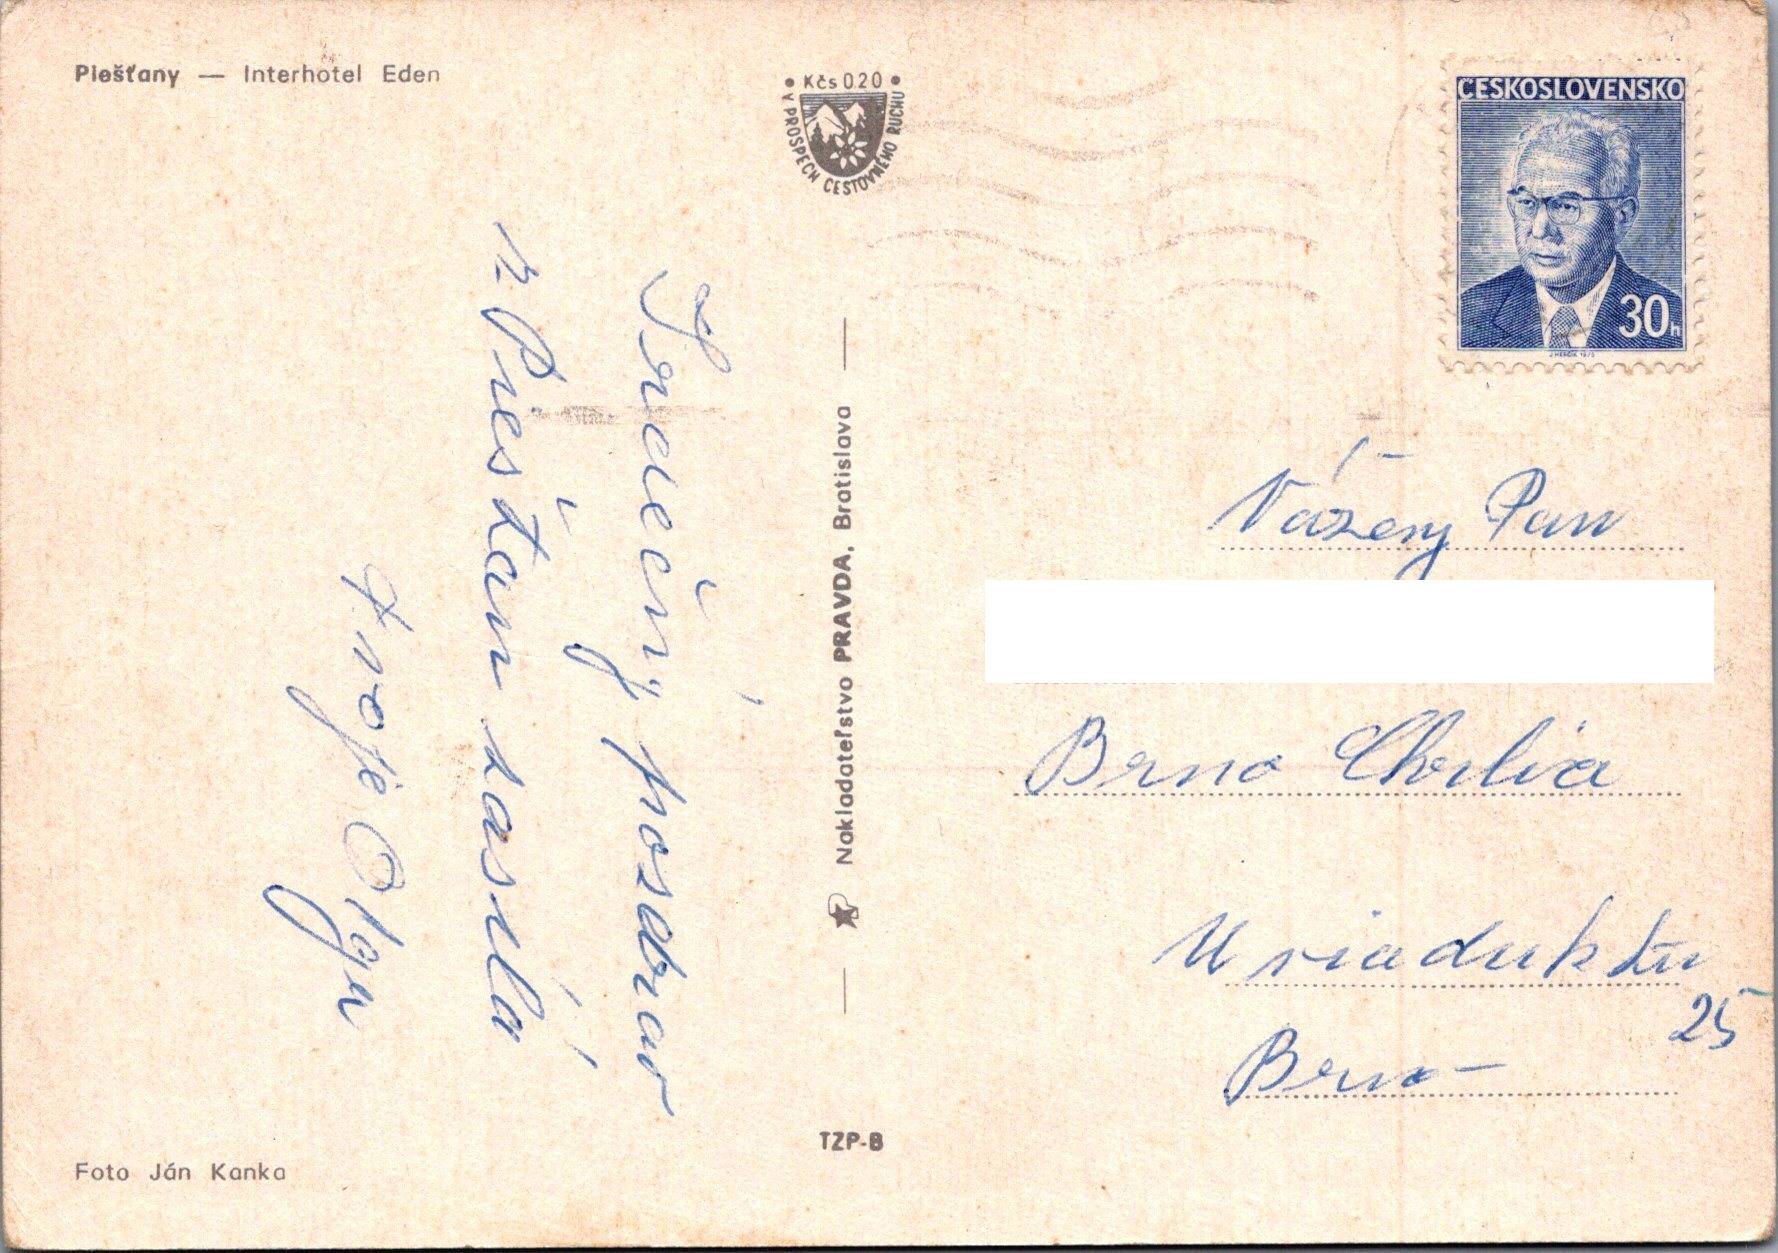 Piešťany — Interhotel Eden
• Kčs 0.20 •
V PROSPECH CESTOVNÉHO RUCHU
ČESKOSLOVENSKO
30h
J. HERČÍK 1975
Srdečný pozdrav
z Piešťan zasílá
tvoje Olga
Nakladateľstvo PRAVDA, Bratislava
Vážený Pan
Brno Chrlice
U viaduktu
25
Brno
TZP-B
Foto Ján Kanka